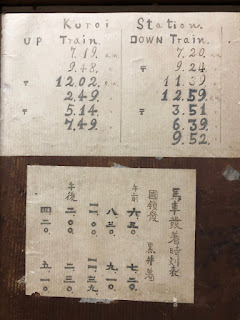 Kuroi Station.
UP Train. DOWN Train.
7.19. a.m. 7.20 a.m.
9.48. 〒 9.24
〒 12.02. p.m. 11.39
2.49. 12.59 p.m.
〒 5.14 〒 3.51
7.49. 6.39
9.52.
馬車發着時刻表
國領發 黒井着
午前 六.五〇 七.二〇
八.三〇 九.一〇
一一.〇〇 一一.三九
午後 二.〇〇 二.三〇
四.三〇 五.一〇